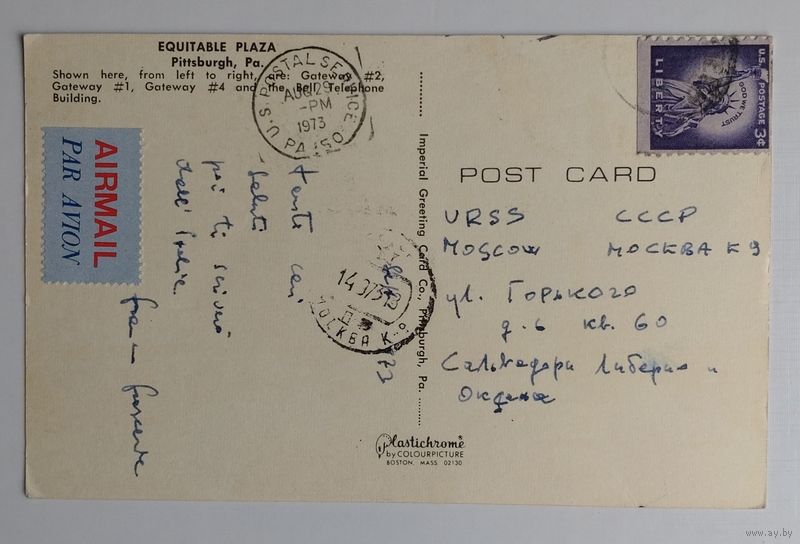 EQUITABLE PLAZA
Pittsburgh, Pa.
Shown here, from left to right, are: Gateway #2,
Gateway #1, Gateway #4 and the Bell Telephone
Building.
AIRMAIL
PAR AVION
U.S. POSTAL SERVICE PA 150
AUG 29
-PM
1973
tanti cari
saluti
poi ti scriverò
dall' Italia.
МОСКВА К-9
Imperial Greeting Card Co., Pittsburgh, Pa.
U.S. POSTAGE 3¢
LIBERTY
IN GOD WE TRUST
POST CARD
URSS СССР
MOSCOW МОСКВА К 9
ул. Горького
д. 6 кв. 60
Сальвадори Либерио и
Plastichrome
by COLOURPICTURE
BOSTON, MASS 02130
www.ay.by